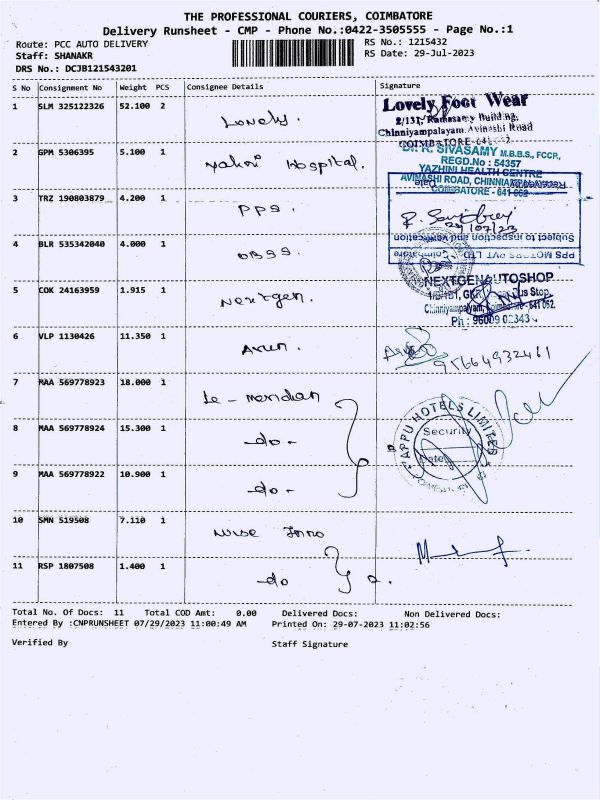 THE PROFESSIONAL COURIERS, COIMBATORE
Delivery Runsheet - CMP - Phone No.:0422-3505555 - Page No.:1
Route: PCC AUTO DELIVERY
RS No.: 1215432
Staff: SHANAKR
RS Date: 29-Jul-2023
DRS No.: DCJB121543201
S No Consignment No Weight PCS Consignee Details Signature
1 SLM 325122326 52.100 2 Lovely.
Lovely Foot Wear
2/131, Ramasamy Building,
Chinniyampalayam, Avinashi Road
COIMBATORE
2 GPM 5306395 5.100 1 Hospital.
Dr. R. SIVASAMY M.B.B.S., FCCP.,
REGD.No : 54357
YAZHINI HEALTH CENTRE
AVINASHI ROAD,
COIMBATORE - 641 062
3 TRZ 190803879 4.200 1 PPS.
29/07/23
Subject to inspection and verification
PPS MOTORS PVT LTD., Coimbatore
4 BLR 535342040 4.000 1
5 COK 24163959 1.915 1 Nextgen.
NEXTGEN AUTOSHOP
Bus Stop,
Chinniyampalyam, Coimbatore - 641 062.
Ph : 96009 02343
6 VLP 1130426 11.350 1 Arun.
7 MAA 569778923 18.000 1 Le-meridian
8 MAA 569778924 15.300 1 -do-
APPU HOTELS LIMITED
Security
Date
COIMBATORE
9 MAA 569778922 10.900 1 -do-
10 SMN 519508 7.110 1
11 RSP 1807508 1.400 1 -do
Total No. Of Docs: 11 Total COD Amt: 0.00 Delivered Docs: Non Delivered Docs:
Entered By :CNPRUNSHEET 07/29/2023 11:00:49 AM Printed On: 29-07-2023 11:02:56
Verified By Staff Signature